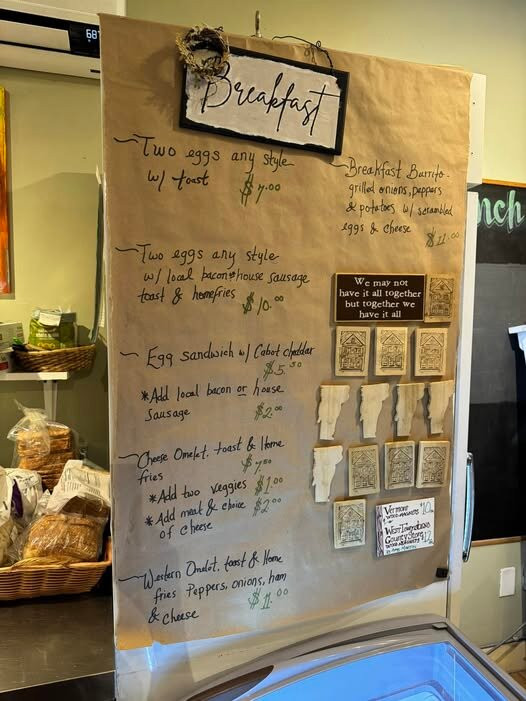 68
Breakfast
Two eggs any style
w/ toast $7.00
Breakfast Burrito -
grilled onions, peppers
& potatoes w/ scrambled
eggs & cheese
$11.00
nch
Two eggs any style
w/ local bacon or house sausage
toast & homefries $10.00
We may not
have it all together
but together we
have it all
Egg sandwich w/ Cabot cheddar
$5.50
*Add local bacon or house
sausage $2.00
Cheese Omelet. toast & Home
fries $7.50
*Add two veggies $1.00
*Add meat & choice $2.00
of cheese
Vermont
$10
West Townshend
Country Store
$12
Western Omelet. toast & Home
fries Peppers, onions, ham
& cheese $11.00